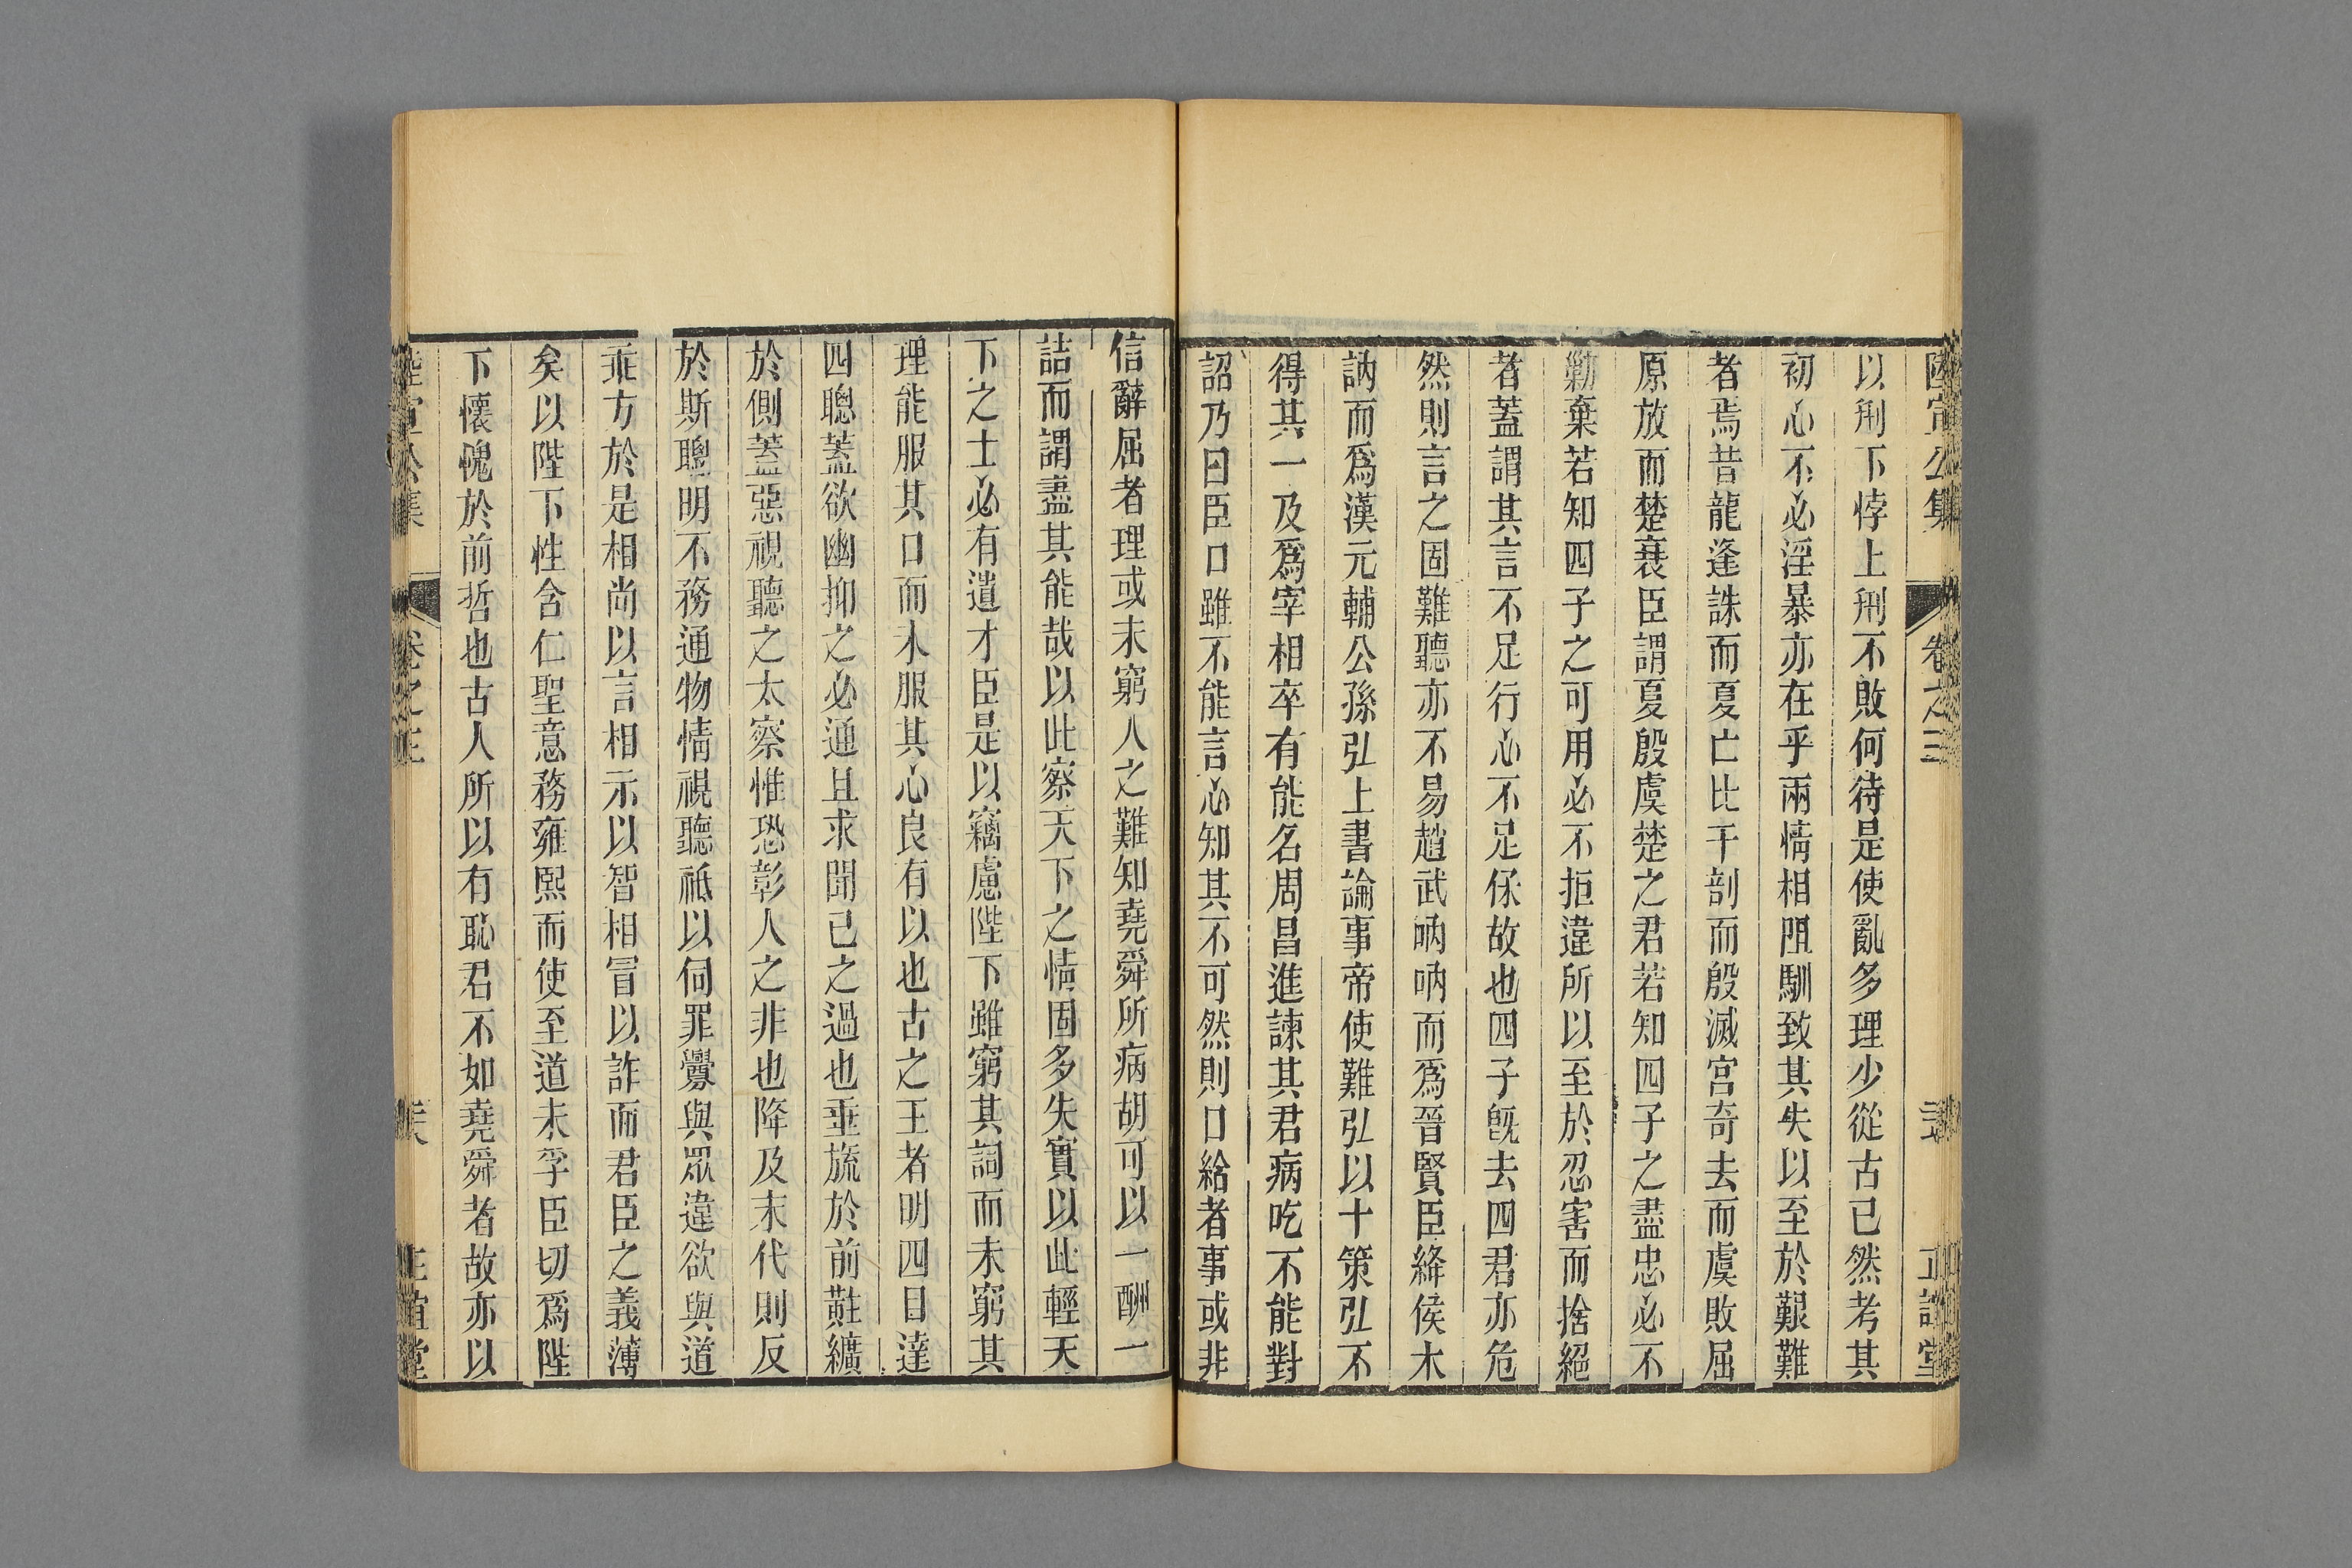 陸宣公集 卷之三 正誼堂
以刑下悖上刑不敗何待是使亂多理少從古已然考其
初心不必淫暴亦在乎兩情相阻馴致其失以至於艱難
者焉昔龍逢誅而夏亡比干剖而殷滅宮奇去而虞敗屈
原放而楚衰臣謂夏殷虞楚之君若知四子之盡忠必不
勦棄若知四子之可用必不拒違所以至於忍害而捨絕
者蓋謂其言不足行心不足保故也四子旣去四君亦危
然則言之固難聽亦不易趙武吶吶而爲晉賢臣絳侯木
訥而爲漢元輔公孫弘上書論事帝使難弘以十策弘不
得其一及爲宰相卒有能名周昌進諫其君病吃不能對
詔乃曰臣口雖不能言心知其不可然則口給者事或非
信辭屈者理或未窮人之難知堯舜所病胡可以一酬一
詰而謂盡其能哉以此察天下之情固多失實以此輕天
下之士必有遺才臣是以竊慮陛下雖窮其詞而未窮其
理能服其口而未服其心良有以也古之王者明四目達
四聰蓋欲幽抑之必通且求聞已之過也垂旒於前黈纊
於側蓋惡視聽之太察惟恐彰人之非也降及末代則反
於斯聰明不務通物情視聽祗以伺罪釁與眾違欲與道
乖方於是相尚以言相示以智相冒以詐而君臣之義薄
矣以陛下性含仁聖意務雍熙而使至道未孚臣切爲陛
下懷愧於前哲也古人所以有恥君不如堯舜者故亦以
陸宣公集 卷之三 正誼堂